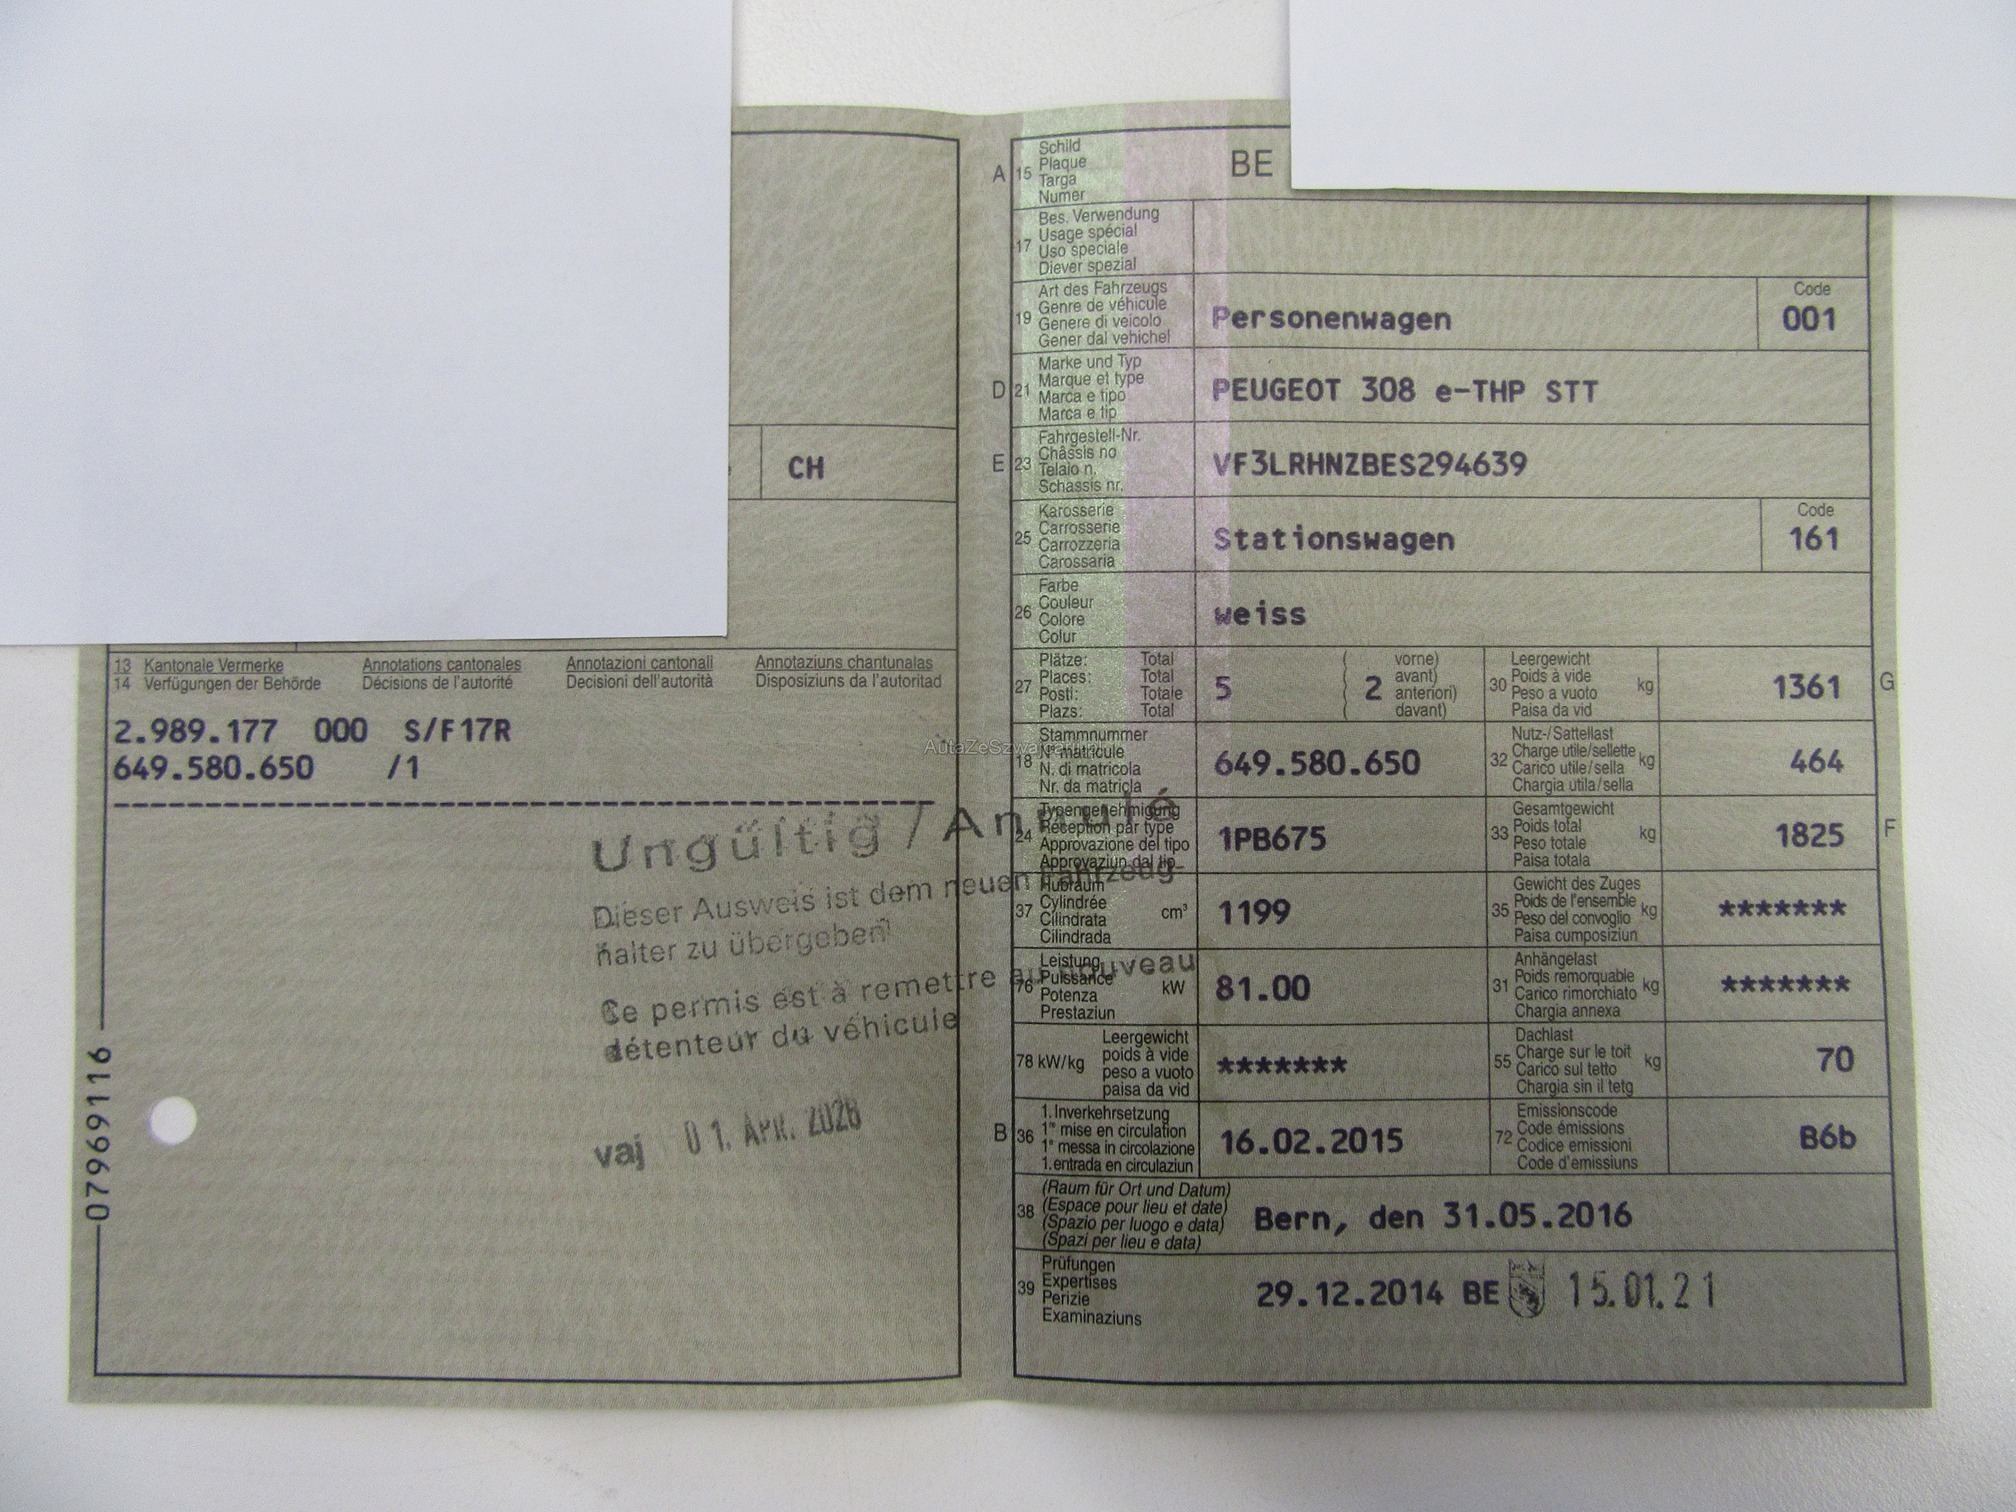 CH
13 Kantonale Vermerke Annotations cantonales Annotazioni cantonali Annotaziuns chantunalas
14 Verfügungen der Behörde Décisions de l'autorité Decisioni dell'autorità Disposiziuns da l'autoritad
2.989.177 000 S/F17R
649.580.650 /1
Ungültig / Annulé
Dieser Ausweis ist dem neuen Fahrzeug-
halter zu übergeben!
Ce permis est à remettre au nouveau
détenteur du véhicule
vaj 01. APR.
07969116
A 15 Schild
Plaque
Targa
Numer
BE
17 Bes. Verwendung
Usage spécial
Uso speciale
Diever spezial
19 Art des Fahrzeugs
Genre de véhicule
Genere di veicolo
Gener dal vehichel
Personenwagen
Code
001
D 21 Marke und Typ
Marque et type
Marca e tipo
Marca e tip
PEUGEOT 308 e-THP STT
E 23 Fahrgestell-Nr.
Châssis no
Telaio n.
Schassis nr.
VF3LRHNZBES294639
25 Karosserie
Carrosserie
Carrozzeria
Carossaria
Stationswagen
Code
161
26 Farbe
Couleur
Colore
Colur
weiss
27 Plätze: Total
Places: Total
Posti: Totale
Plazs: Total
5
( vorne)
( 2 avant)
( anteriori)
( davant)
30 Leergewicht
Poids à vide
Peso a vuoto
Paisa da vid
kg
1361
G
18 Stammnummer
N° matricule
N. di matricola
Nr. da matricla
649.580.650
32 Nutz-/Sattellast
Charge utile/sellette
Carico utile/sella
Chargia utila/sella
kg
464
24 Typengenehmigung
Réception par type
Approvazione del tipo
Approvaziun dal tip
1PB675
33 Gesamtgewicht
Poids total
Peso totale
Paisa totala
kg
1825
F
37 Hubraum
Cylindrée
Cilindrata
Cilindrada
cm³
1199
35 Gewicht des Zuges
Poids de l'ensemble
Peso del convoglio
Paisa cumposiziun
kg
*******
76 Leistung
Puissance
Potenza
Prestaziun
kW
81.00
31 Anhängelast
Poids remorquable
Carico rimorchiato
Chargia annexa
kg
*******
78 kW/kg
Leergewicht
poids à vide
peso a vuoto
paisa da vid
*******
55 Dachlast
Charge sur le toit
Carico sul tetto
Chargia sin il tetg
kg
70
B 36 1. Inverkehrsetzung
1re mise en circulation
1a messa in circolazione
1. entrada en circulaziun
16.02.2015
72 Emissionscode
Code émissions
Codice emissioni
Code d'emissiuns
B6b
38 (Raum für Ort und Datum)
(Espace pour lieu et date)
(Spazio per luogo e data)
(Spazi per lieu e data)
Bern, den 31.05.2016
39 Prüfungen
Expertises
Perizie
Examinaziuns
29.12.2014 BE 15.01.21